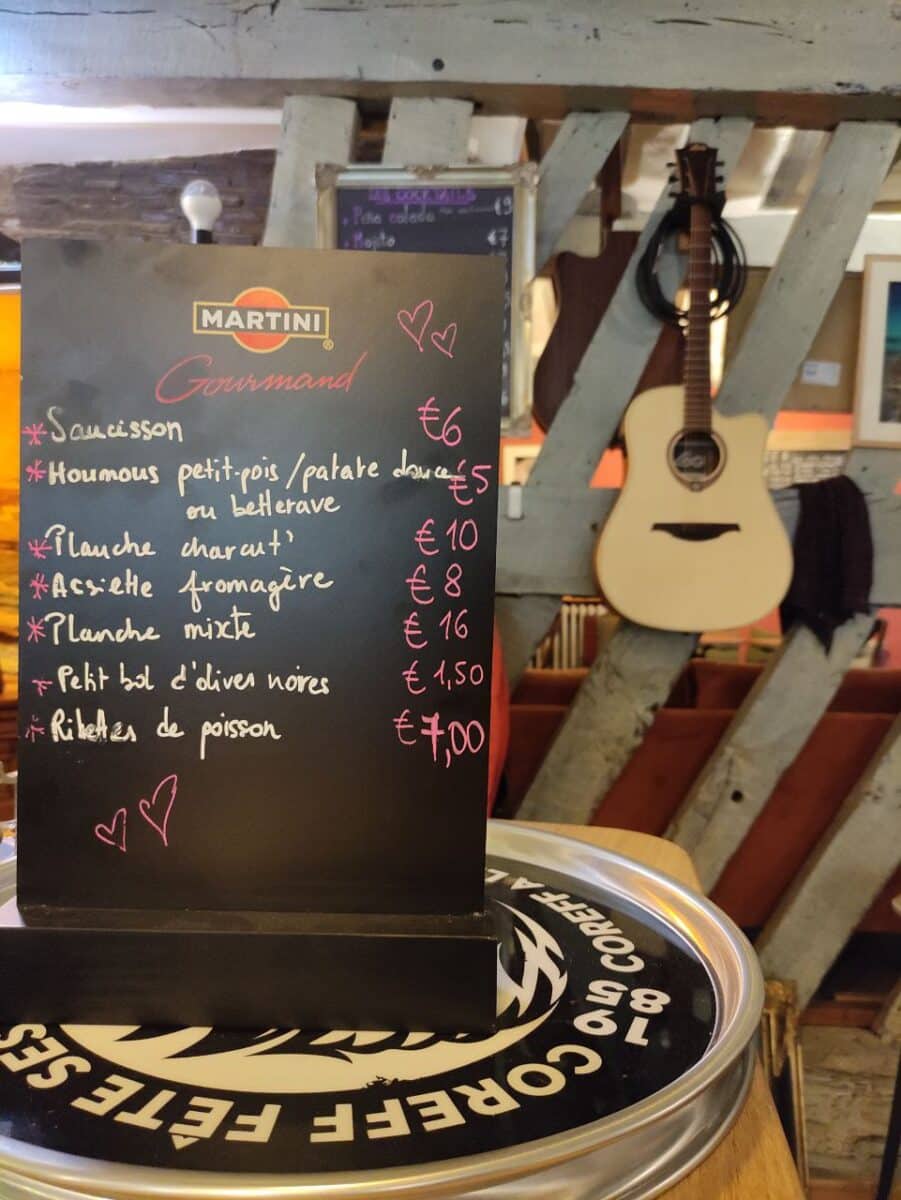 LES COCKTAILS
Piña colada €9
Mojito €7
MARTINI®
Gourmand
* Saucisson €6
* Houmous petit-pois/patate douce €5
ou betterave
* Planche charcut' €10
* Assiette fromagère €8
* Planche mixte €16
* Petit bol d'olives noires €1,50
* Rillettes de poisson €7,00
COREFF FÊTE SES
1985 COREFF A